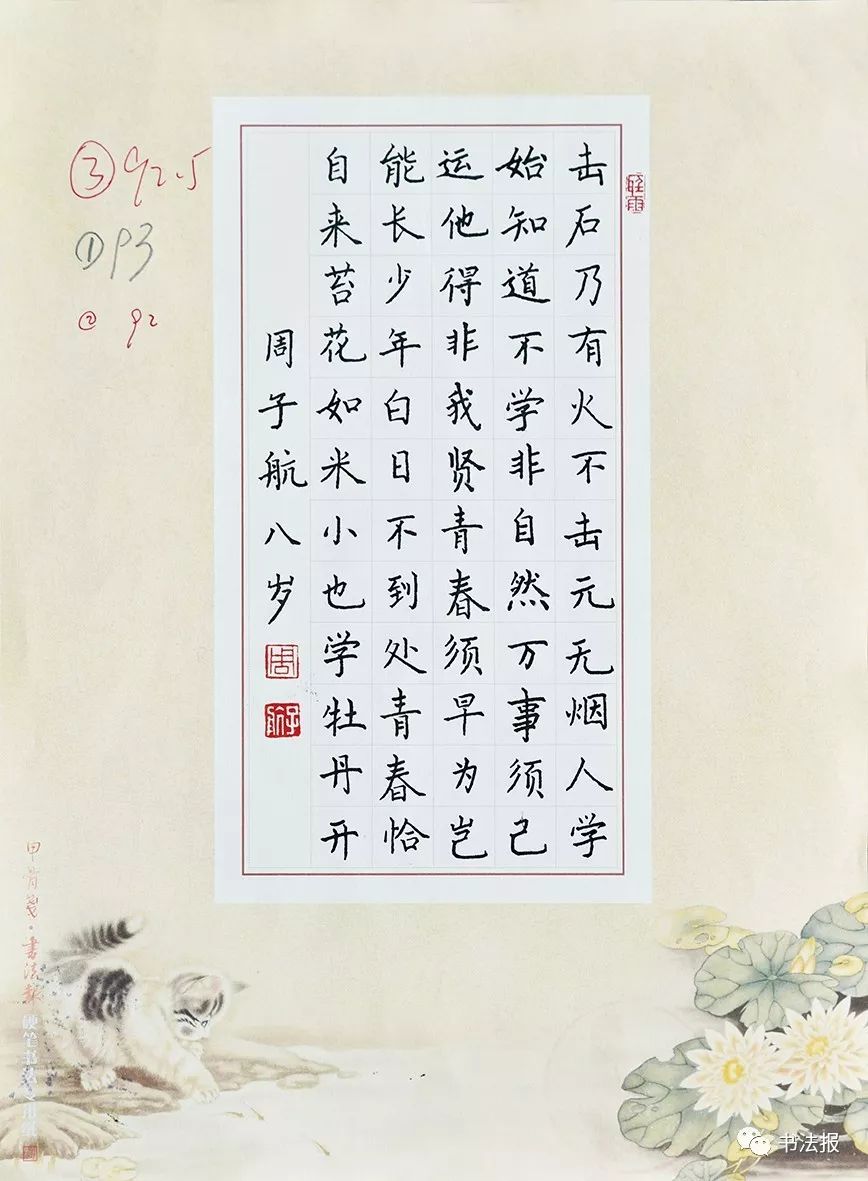 击石乃有火不击元无烟人学
始知道不学非自然万事须己
运他得非我贤青春须早为岂
能长少年白日不到处青春恰
自来苔花如米小也学牡丹开
周子航八岁
周
子航
③92.5
①93
②92
甲骨箋·書法報
书法报